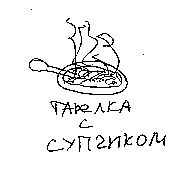 ТАРЕЛКА
С
СУПЧИКОМ